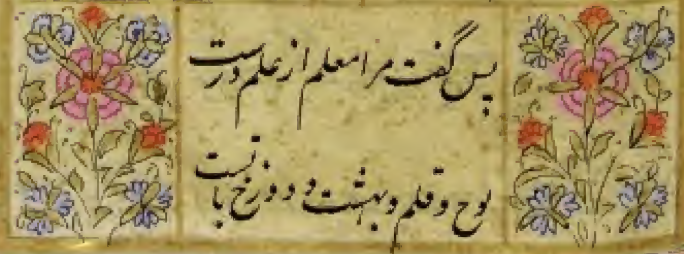 پس گفت مرا معلم از علم درست
لوح و قلم و بهشت و دوزخ با تست